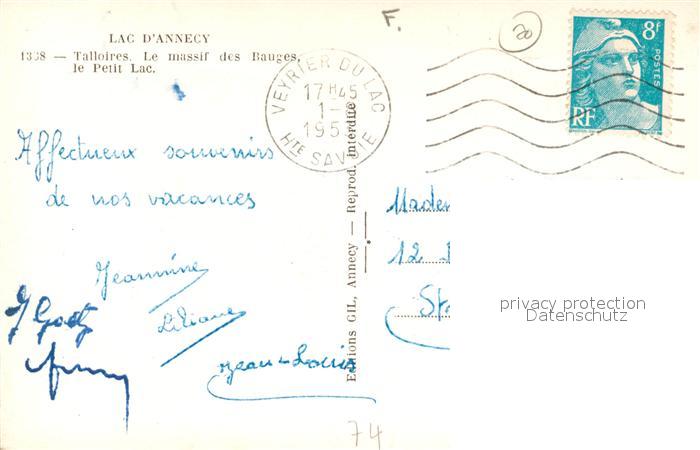 LAC D'ANNECY
— Talloires. Le massif des Bauges,
le Petit Lac.
F.
20
8F
POSTES
RF
VEYRIER DU LAC
17H45
1-
195
HTE SAVOIE
Affectueux souvenirs
de nos vacances
Jeannine
Liliane
Jean-Louis
Editions GIL, Annecy — Reprod. interdite
12
privacy protection
Datenschutz
74